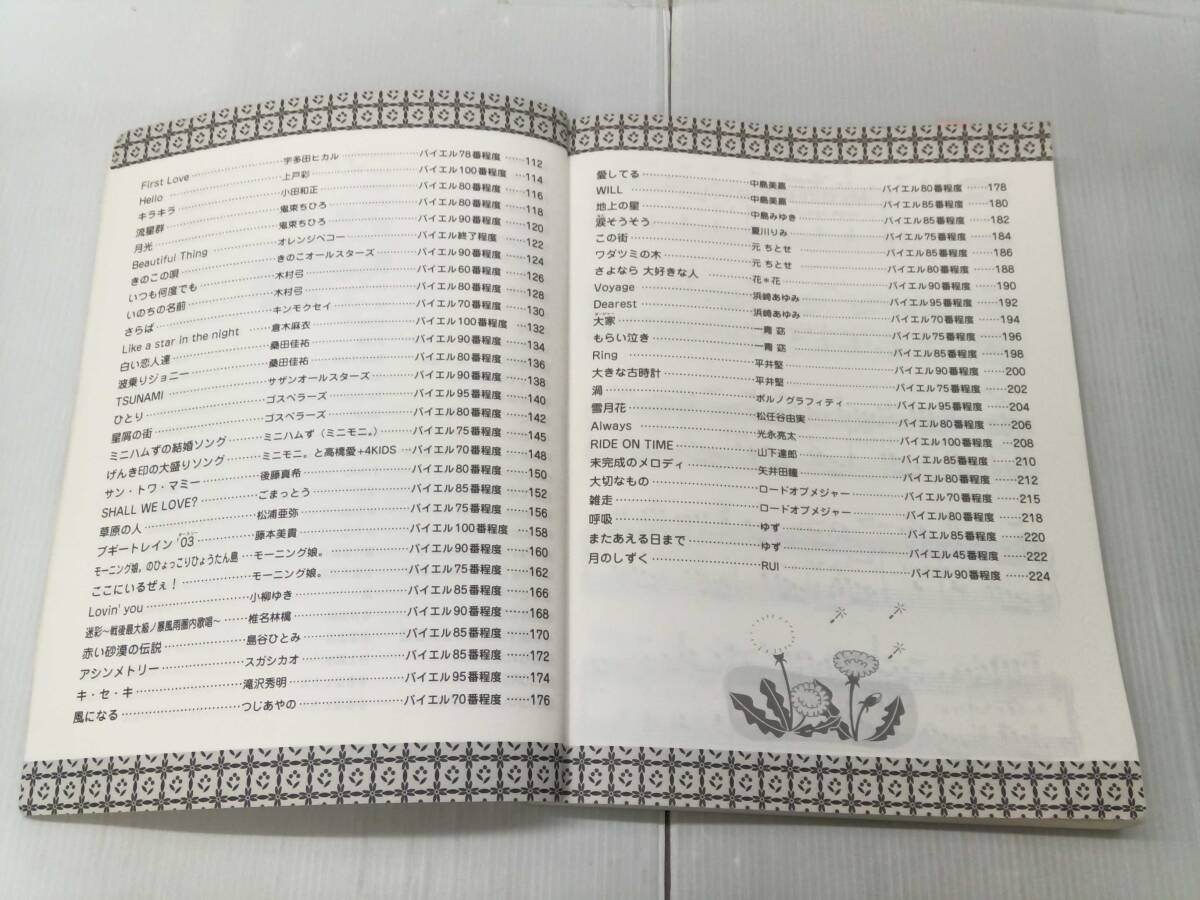 First Love……宇多田ヒカル……バイエル78番程度……112
Hello……上戸彩……バイエル100番程度……114
キラキラ……小田和正……バイエル80番程度……116
流星群……鬼束ちひろ……バイエル80番程度……118
月光……鬼束ちひろ……バイエル90番程度……120
Beautiful Thing……オレンジペコー……バイエル終了程度……122
きのこの唄……きのこオールスターズ……バイエル90番程度……124
いつも何度でも……木村弓……バイエル60番程度……126
いのちの名前……木村弓……バイエル80番程度……128
さらば……キンモクセイ……バイエル70番程度……130
Like a star in the night……倉木麻衣……バイエル100番程度……132
白い恋人達……桑田佳祐……バイエル90番程度……134
波乗りジョニー……桑田佳祐……バイエル80番程度……136
TSUNAMI……サザンオールスターズ……バイエル90番程度……138
ひとり……ゴスペラーズ……バイエル95番程度……140
星屑の街……ゴスペラーズ……バイエル80番程度……142
ミニハムずの結婚ソング……ミニハムず（ミニモニ。）……バイエル75番程度……145
げんき印の大盛りソング……ミニモニ。と高橋愛+4KIDS……バイエル70番程度……148
サン・トワ・マミー……後藤真希……バイエル80番程度……150
SHALL WE LOVE?……ごまっとう……バイエル85番程度……152
草原の人……松浦亜弥……バイエル75番程度……156
ブギートレイン'03……藤本美貴……バイエル100番程度……158
モーニング娘。のひょっこりひょうたん島……モーニング娘。……バイエル90番程度……160
ここにいるぜぇ！……モーニング娘。……バイエル75番程度……162
Lovin' you……小柳ゆき……バイエル85番程度……166
迷彩〜戦後最大級ノ暴風雨圏内歌唱〜……椎名林檎……バイエル90番程度……168
赤い砂漠の伝説……島谷ひとみ……バイエル85番程度……170
アシンメトリー……スガシカオ……バイエル85番程度……172
キ・セ・キ……滝沢秀明……バイエル95番程度……174
風になる……つじあやの……バイエル70番程度……176
愛してる……中島美嘉……バイエル80番程度……178
WILL……中島美嘉……バイエル85番程度……180
地上の星……中島みゆき……バイエル85番程度……182
涙そうそう……夏川りみ……バイエル75番程度……184
この街……元 ちとせ……バイエル85番程度……186
ワダツミの木……元 ちとせ……バイエル80番程度……188
さよなら 大好きな人……花＊花……バイエル90番程度……190
Voyage……浜崎あゆみ……バイエル95番程度……192
Dearest……浜崎あゆみ……バイエル70番程度……194
大家……一青 窈……バイエル75番程度……196
もらい泣き……一青 窈……バイエル85番程度……198
Ring……平井堅……バイエル90番程度……200
大きな古時計……平井堅……バイエル75番程度……202
渦……ポルノグラフィティ……バイエル95番程度……204
雪月花……松任谷由実……バイエル80番程度……206
Always……光永亮太……バイエル100番程度……208
RIDE ON TIME……山下達郎……バイエル85番程度……210
未完成のメロディ……矢井田瞳……バイエル80番程度……212
大切なもの……ロードオブメジャー……バイエル70番程度……215
雑走……ロードオブメジャー……バイエル80番程度……218
呼吸……ゆず……バイエル85番程度……220
またあえる日まで……ゆず……バイエル45番程度……222
月のしずく……RUI……バイエル90番程度……224